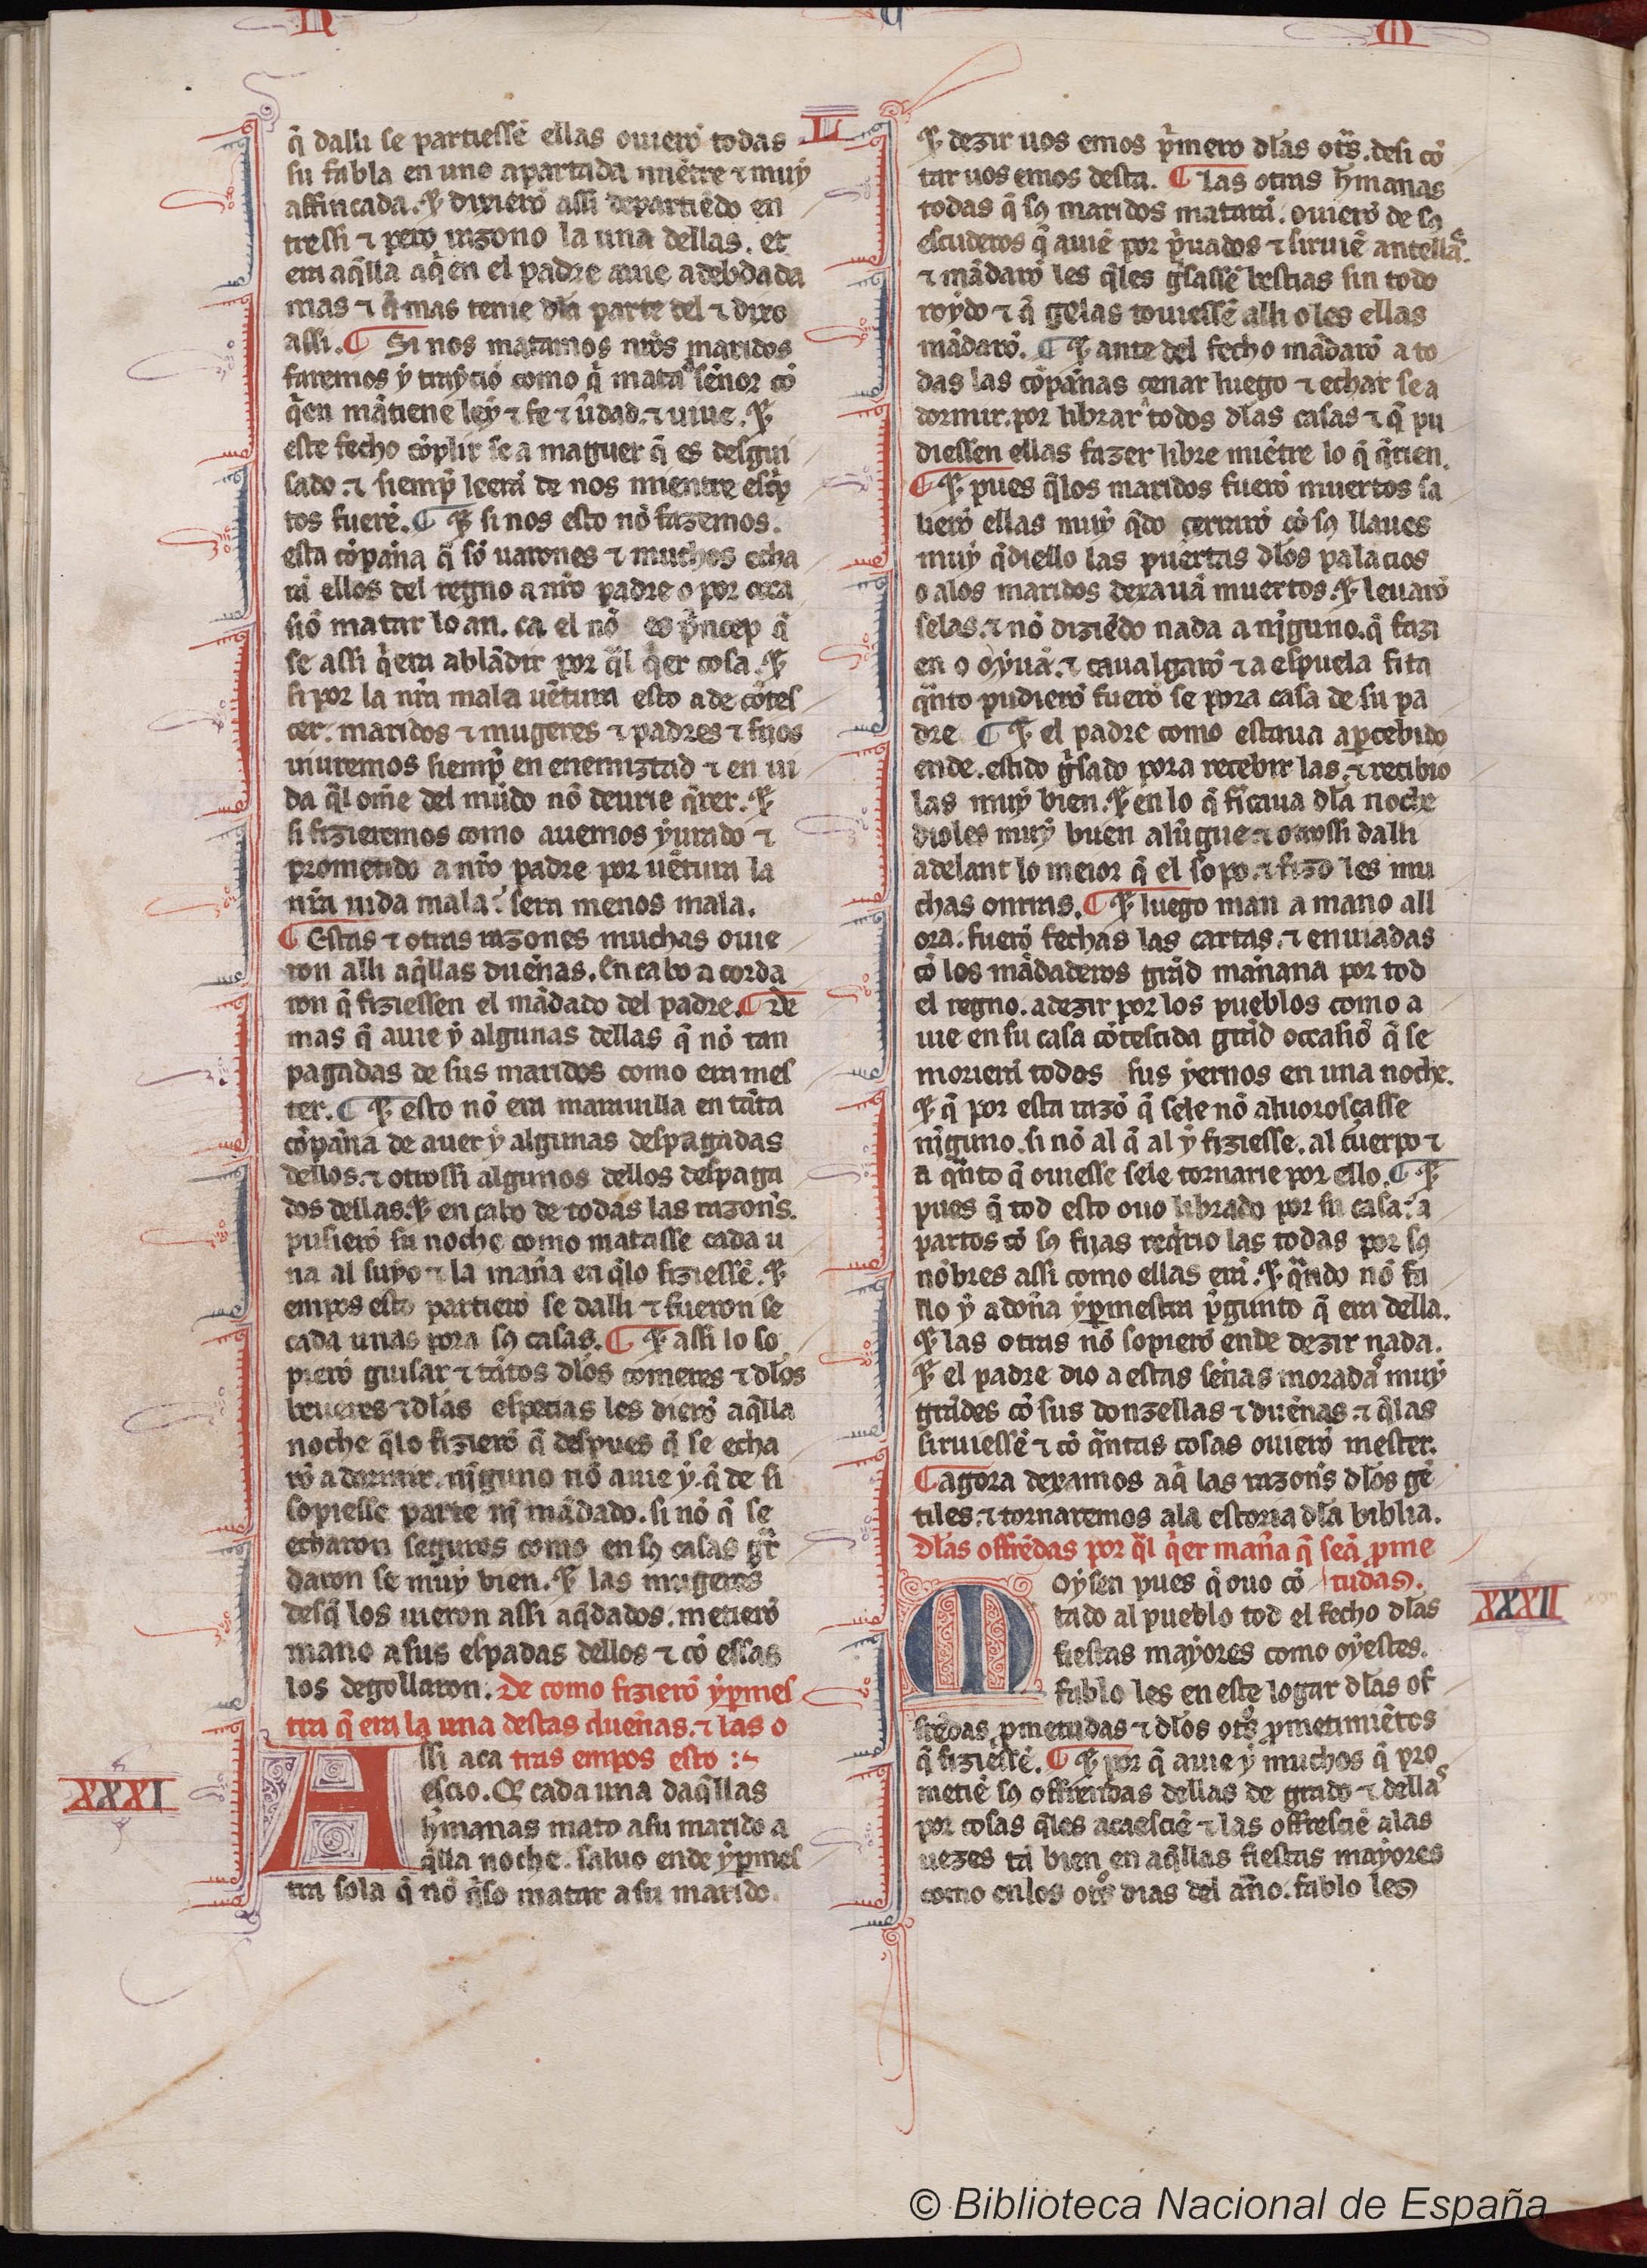 L
q̃ dalli se partiessẽ ellas ouierõ todas
su fabla en uno apartada miẽtre ⁊ muẏ
affincada. ⁊ dixierõ assi departiẽdo en
tressi ⁊ pero razono la una dellas. et
era aq̃lla aq̃en el padre auie adebdada
mas ⁊ q̃ mas tenie dla parte del ⁊ dixo
assi. ¶ Si nos matamos nr̃os maridos
faremos ẏ trayciõ como q̃ mata señor cõ
q̃en mãtiene leẏ ⁊ fe ⁊ ũdad. ⁊ uiue. ⁊
este fecho cõplir se a maguer q̃ es desgui
sado. ⁊ siemp̃ leerã de nos mientre esc̃p
tos fuerẽ. ¶ ⁊ si nos esto nõ fazemos.
esta cõpaña q̃ sõ uarones ⁊ muchos echa
rã ellos del regno a nr̃o padre o por oca
siõ matar lo an. ca el nõ es p̃ncep q̃
se assi q̃era ablãdir por q̃l q̃er cosa. ⁊
si por la nr̃a mala uẽtura esto a de cõtes
cer. maridos ⁊ mugeres ⁊ padres ⁊ fijos
uiuremos siemp̃ en enemiztad ⁊ en ui
da q̃l om̃e del mũdo nõ deurie q̃rer. ⁊
si fizieremos como auemos ẏurado ⁊
prometido a nr̃o padre por uẽtura la
nr̃a uida mala sera menos mala.
¶ Estas ⁊ otras razones muchas ouie
ron alli aq̃llas dueñas. En cabo acorda
ron q̃ fiziessen el mãdado del padre. ¶ De
mas q̃ auie ẏ algunas dellas q̃ nõ tan
pagadas de sus maridos como era mes
ter. ¶ ⁊ esto nõ era marauilla en tãta
cõpaña de auer ẏ algunas despagadas
dellos. ⁊ otrossi algunos dellos despaga
dos dellas. ⁊ en cabo de todas las razoñs.
pusierõ su noche como matasse cada u
na al suẏo ⁊ la mañã en q̃lo fiziessẽ. ⁊
empos esto partierõ se dalli ⁊ fueron se
cada unas pora sꝯ casas. ¶ ⁊ assi lo so
pierõ guisar ⁊ tãtos dlos comeres ⁊ dlos
beueres ⁊ dlas especias les dierõ aq̃lla
noche q̃lo fizierõ q̃ despues q̃ se echa
rõ a dormir. nĩguno nõ auie ẏ. q̃ de si
sopiesse parte nj̃ mãdado. si nõ q̃ se
echaron seguros como en sꝯ casas gr̃
daron se muẏ bien. ⁊ las mugeres
desq̃ los uieron assi aq̃dados. metierõ
mano a sus espadas dellos ⁊ cõ essas
los degollaron. De como fizierõ ẏp̱mes
tra q̃ era la una destas dueñas. ⁊ las o
ssi aca tras empos esto :~
XXXI
A
escio. Q̃ cada una daq̃llas
h̃manas mato a su marido a
q̃lla noche. saluo ende ẏp̱mes
tra sola q̃ nõ q̃so matar a su marido.
⁊ dezir uos emos p̃mero dlas ot̃s. desi cõ
tar uos emos desta. ¶ Las otras h̃manas
todas q̃ sꝯ maridos matarã. ouierõ de sꝯ
escuderos q̃ auiẽ por p̃uados ⁊ siruiẽ antellas.
⁊ mãdarõ les q̃les g̃sassẽ bestias sin todo
roẏdo ⁊ q̃ gelas touiessẽ alli o les ellas
mãdarõ. ¶ ⁊ ante del fecho mãdarõ a to
das las cõpañas cenar luego ⁊ echar se a
dormir. por librar todos dlas casas ⁊ q̃ pu
diessen ellas fazer libre miẽtre lo q̃ q̃rien.
¶ ⁊ pues q̃los maridos fuerõ muertos sa
lierõ ellas muẏ q̃do cerrarõ cõ sꝯ llaues
muẏ q̃diello las puertas dlos palacios
o alos maridos dexauã muertos. ⁊ leuarõ
selas. ⁊ nõ diziẽdo nada a nĩguno. q̃ fazi
en o oẏuã. ⁊ caualgarõ ⁊ a espuela fita
q̃nto pudierõ fuerõ se pora casa de su pa
dre ¶ ⁊ el padre como estaua ap̱cebido
ende. estido g̃sado pora recebir las. ⁊ recibio
las muẏ bien. ⁊ en lo q̃ fĩcaua dla noche
dioles muẏ buen alũgue ⁊ otrossi dalli
adelant lo meior q̃ el sopo. ⁊ fizo les mu
chas onrras. ¶ ⁊ luego man a mano all
ora. fuerõ fechas las cartas. ⁊ enuiadas
cõ los mãdaderos grãd mañana por tod
el regno. a dezir por los pueblos como a
uie en su casa cõtescida grãd occasiõ q̃ se
morierã todos sus ẏernos en una noche.
⁊ q̃ por esta razõ q̃ sele nõ aluorosçasse
nĩguno. si nõ al q̃ al ẏ fiziesse. al cuerpo ⁊
a q̃nto q̃ ouiesse sele tornarie por ello. ¶ ⁊
pues q̃ tod esto ouo librado por su casa a
partos cõ sꝯ fijas req̃rio las todas por sꝯ
nõbres assi como ellas erã. ⁊ q̃ndo nõ fa
llo ẏ a doña ẏp̱mestra p̃gunto q̃ era della.
⁊ las otras nõ sopierõ ende dezir nada.
⁊ el padre dio a estas señas moradas muẏ
grãdes cõ sus donzellas ⁊ dueñas. ⁊ q̃las
siruiessẽ ⁊ cõ q̃ntas cosas ouierõ mester.
¶ agora dexamos aq̃ las razoñs dlos gẽ
tiles. ⁊ tornaremos ala estoria dla biblia.
Dlas offrẽdas por q̃l q̃er mañã q̃ seã p̱me
XXXII
M
oẏsen pues q̃ ouo cõ tudas.
tado al pueblo tod el fecho dlas
fiestas maẏores como oẏestes.
fablo les en este logar dlas of
frẽdas p̱metudas ⁊ dlos ot̃s p̱metimiẽtos
q̃ fiziessẽ. ¶ ⁊ por q̃ auie ẏ muchos q̃ pro
metiẽ sꝯ offrendas dellas de grado ⁊ dellas
por cosas q̃les acaesciẽ ⁊ las offresciẽ alas
uezes tã bien en aq̃llas fiestas maẏores
como en los ot̃s dias del año. fablo les
© Biblioteca Nacional de España